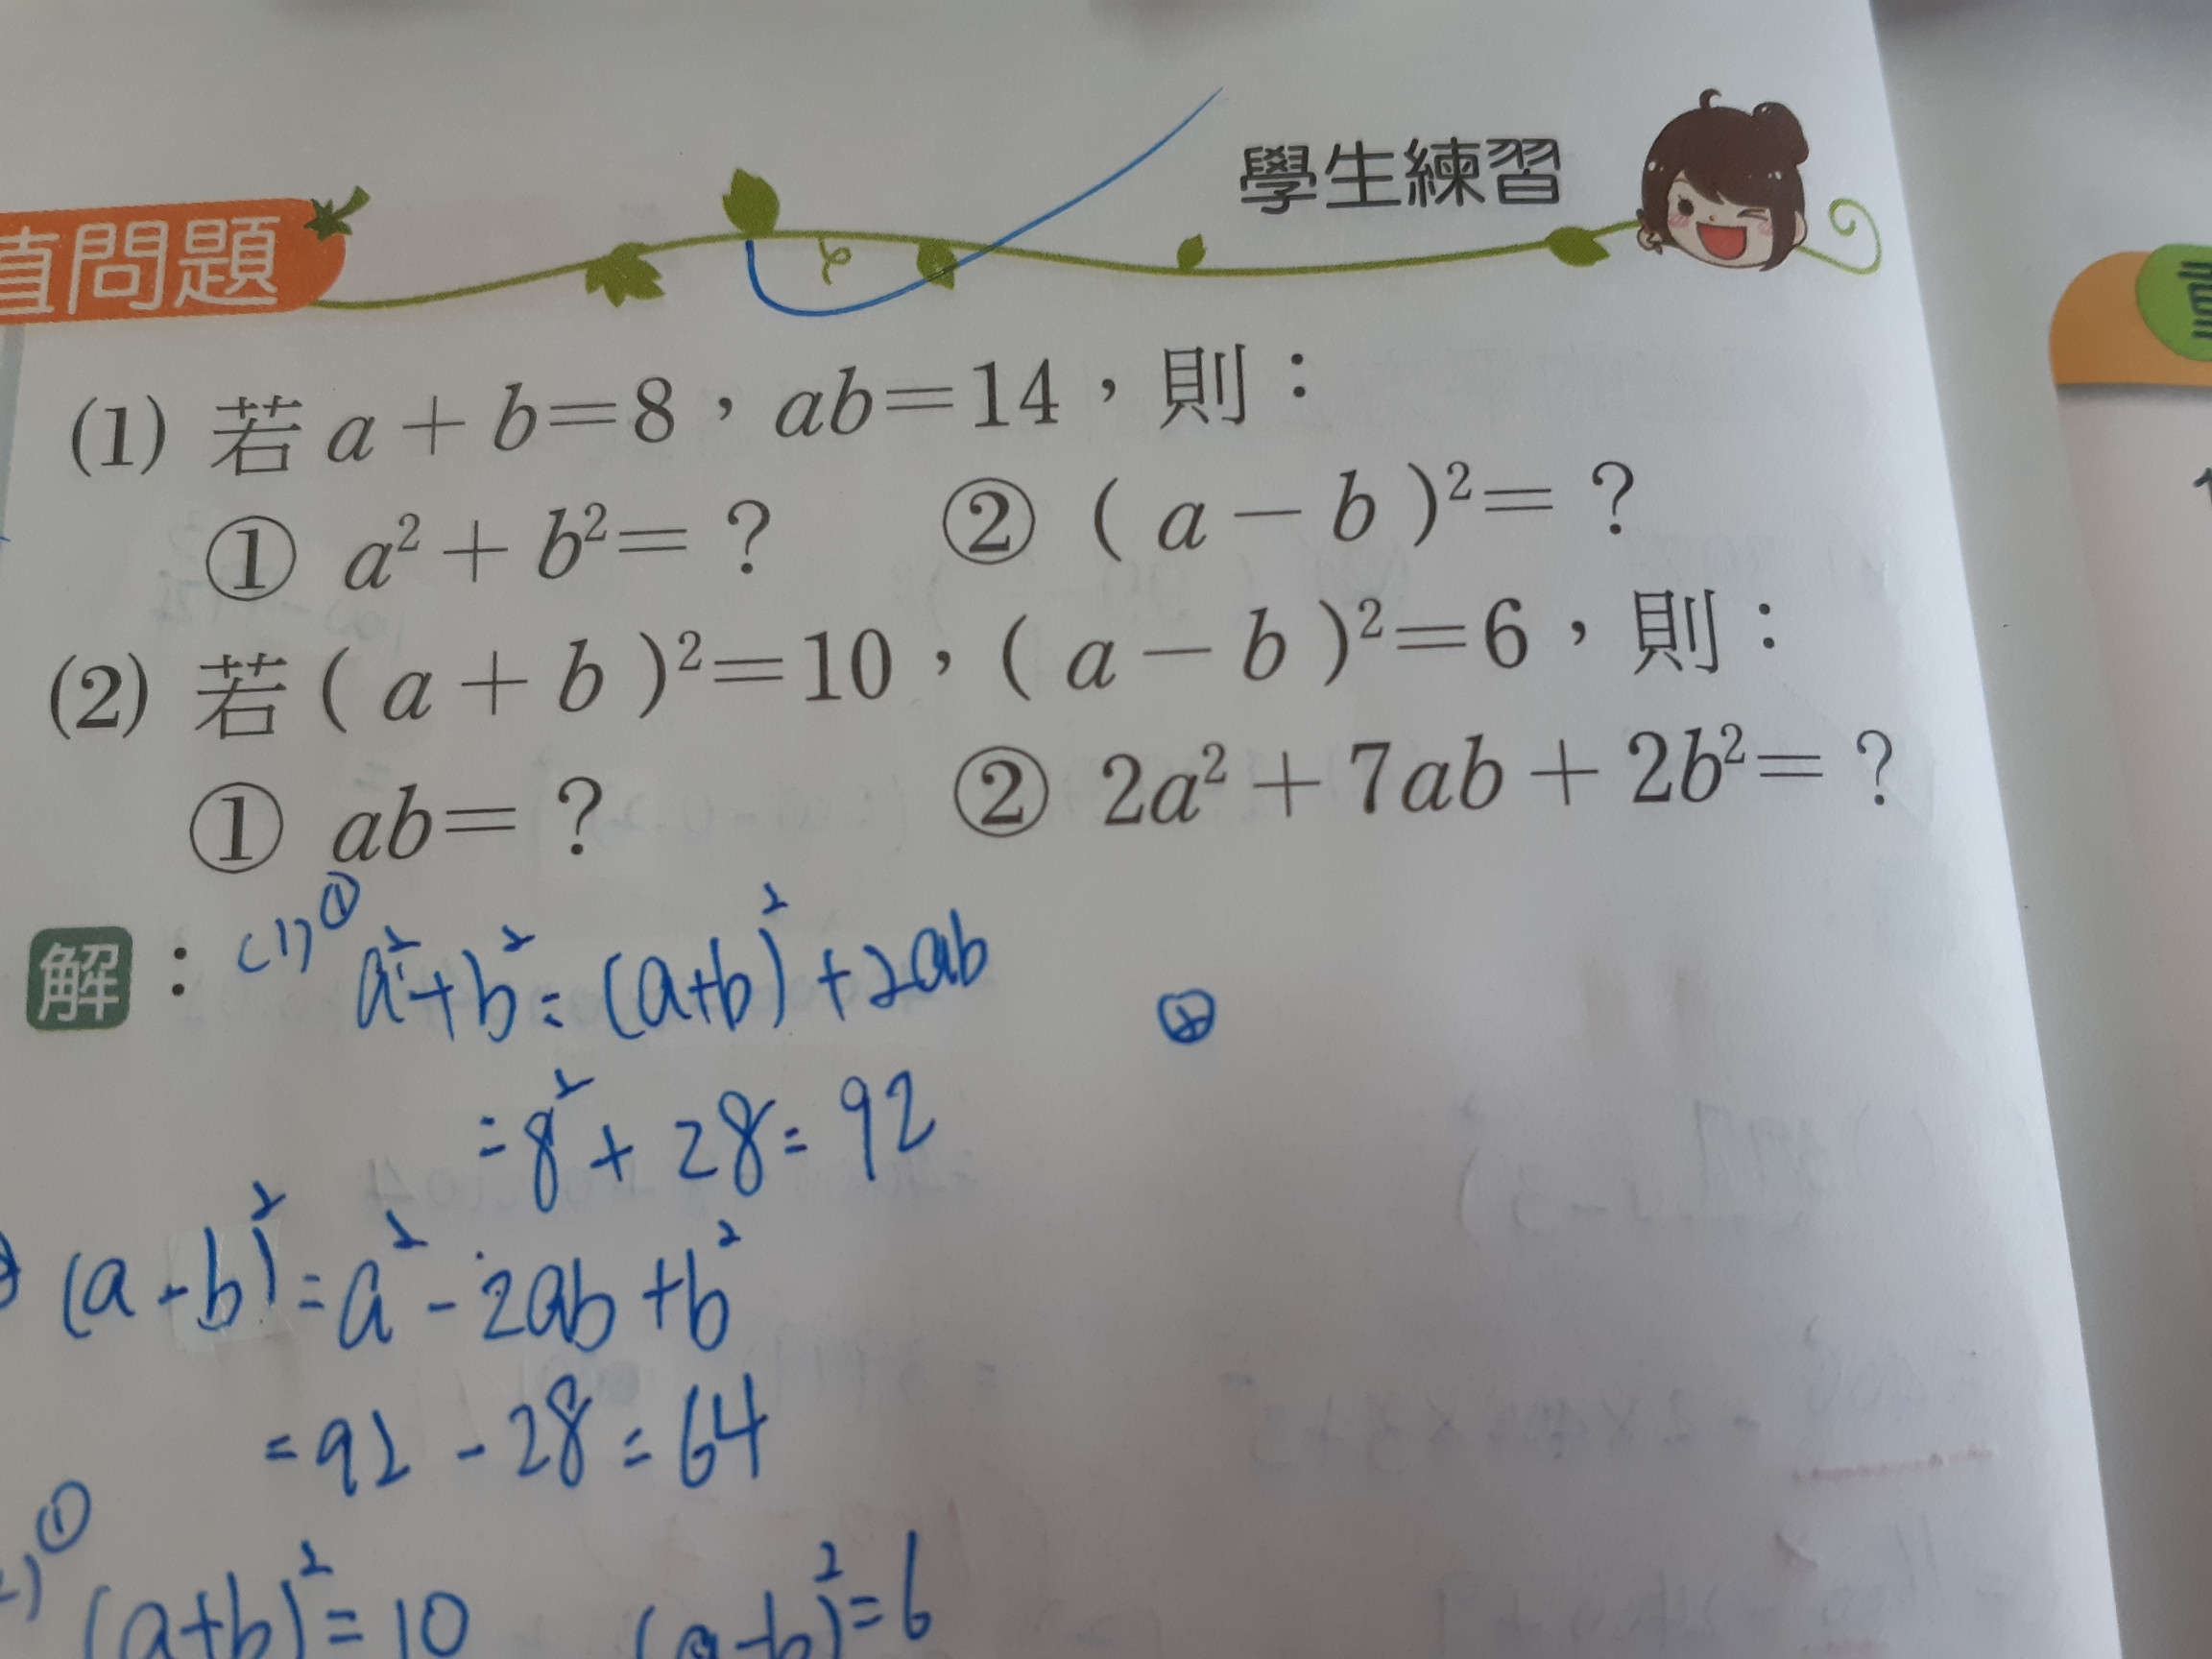 值問題
學生練習
(1) 若 a + b=8，ab=14，則：
① a²+b²=？ ② ( a－b )²=？
(2) 若 ( a+b )²=10，( a－b )²=6，則：
① ab=？ ② 2a²+7ab+2b²=？
解：(1)① a²+b²=(a+b)²+2ab ②
=8²+28=92
(a-b)²=a²-2ab+b²
=92-28=64
① (a+b)²=10 (a-b)²=6